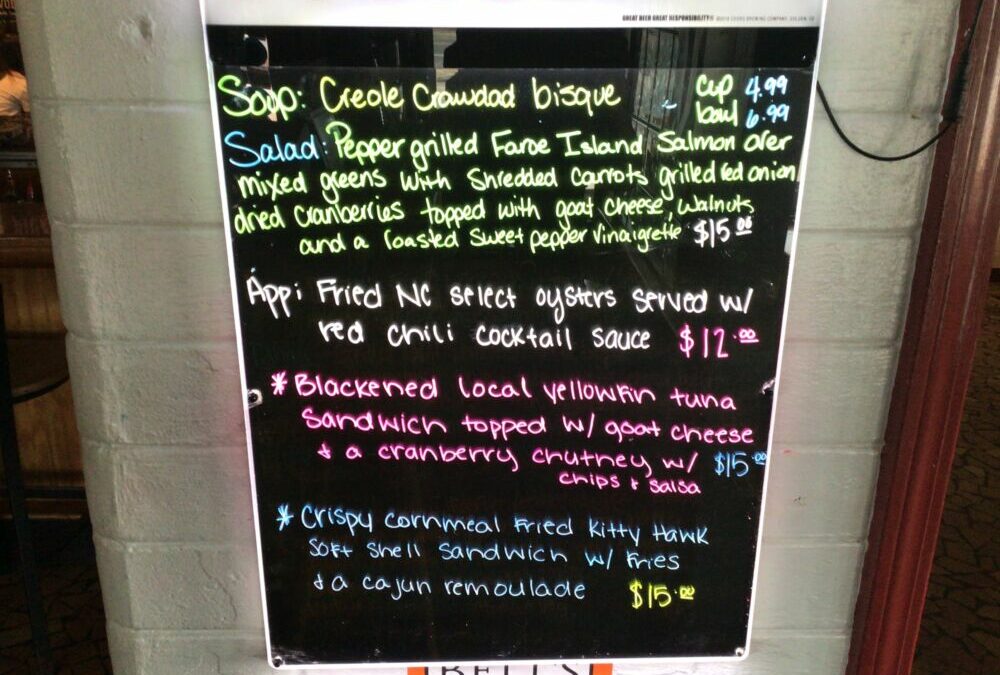 GREAT BEER GREAT RESPONSIBILITY®
Soup: Creole Crawdad bisque cup 4.99
bowl 6.99
Salad: Pepper grilled Faroe Island Salmon over
mixed greens with Shredded carrots grilled red onion,
dried cranberries topped with goat cheese, walnuts
and a roasted sweet pepper vinaigrette $15.00
App: Fried NC select oysters served w/
red chili cocktail sauce $12.00
* Blackened local yellowfin tuna
Sandwich topped w/ goat cheese
& a cranberry chutney w/ $15.00
chips & salsa
* Crispy cornmeal Fried Kitty Hawk
Soft Shell Sandwich w/ Fries
& a cajun remoulade $15.00
BELL'S